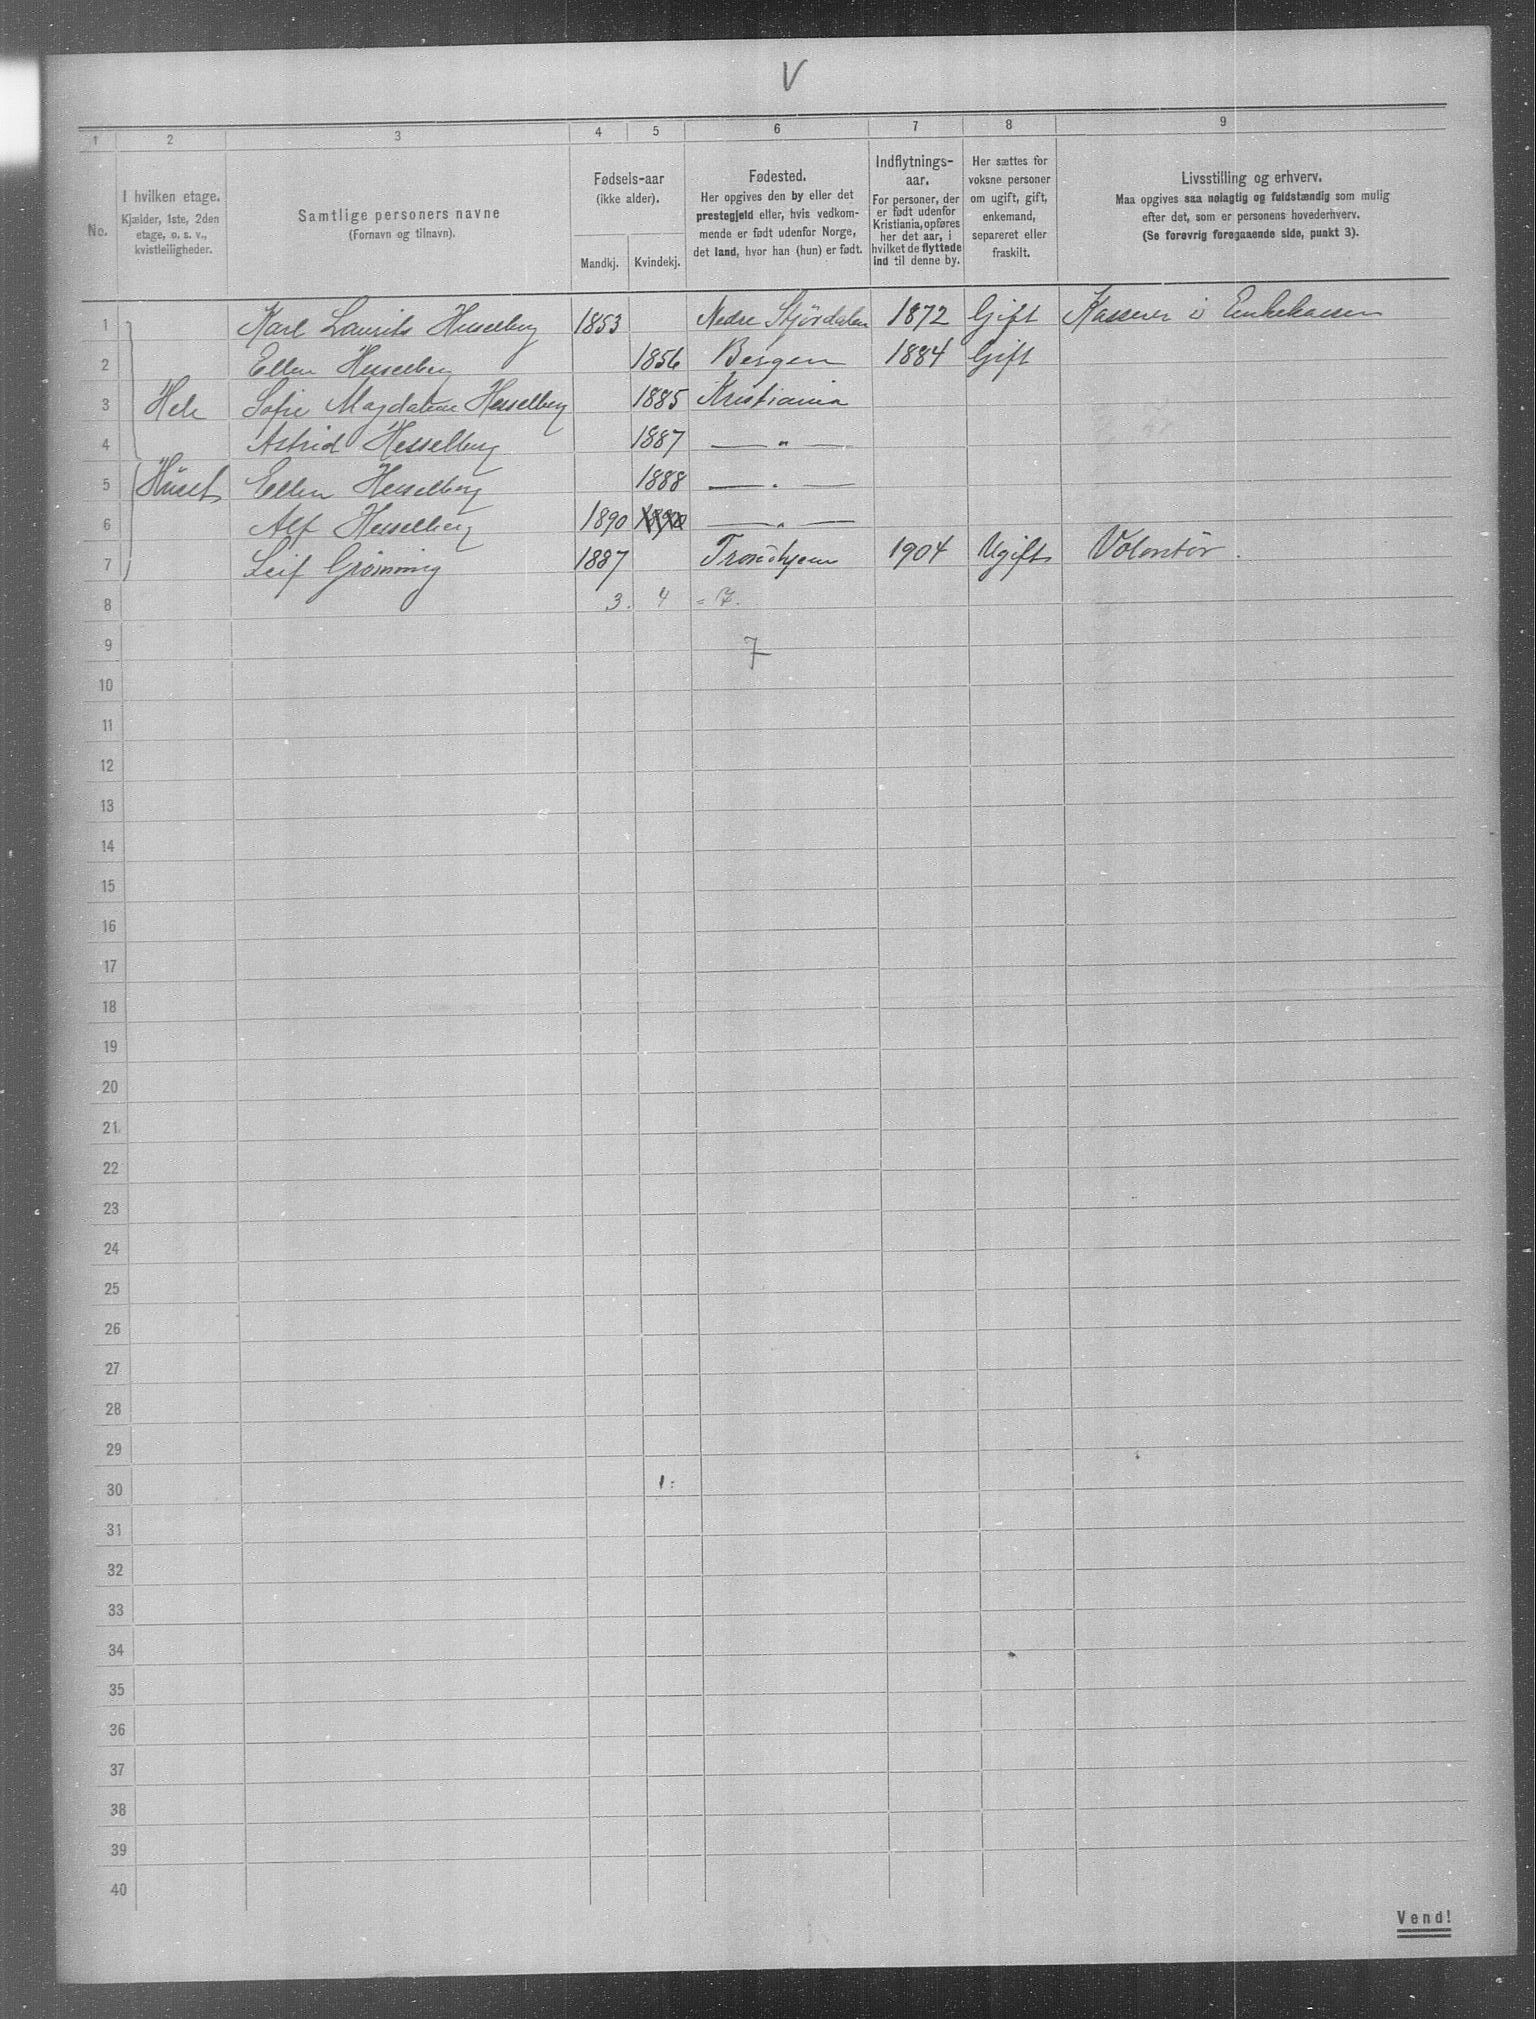 V
1 2 3 4 5 6 7 8 9
No.
I hvilken etage.
Kjælder, 1ste, 2den
etage, o. s. v.,
kvistleiligheder.
Samtlige personers navne
(Fornavn og tilnavn).
Fødsels-aar
(ikke alder).
Mandkj. Kvindekj.
Fødested.
Her opgives den by eller det
prestegjeld eller, hvis vedkom-
mende er født udenfor Norge,
det land, hvor han (hun) er født.
Indflytnings-
aar.
For personer, der
er født udenfor
Kristiania, opføres
her det aar, i
hvilket de flyttede
ind til denne by.
Her sættes for
voksne personer
om ugift, gift,
enkemand,
separeret eller
fraskilt.
Livsstilling og erhverv.
Maa opgives saa nøiagtig og fuldstændig som mulig
efter det, som er personens hovederhverv.
(Se forøvrig foregaaende side, punkt 3).
1 Karl Laurits Hesselberg 1853 Nedre Stjørdalen 1872 Gift Kasserer i Enkekassen
2 Ellen Hesselberg 1856 Bergen 1884 Gift
3 Hele Sofie Magdalene Hesselberg 1885 Kristiania
4 Astrid Hesselberg 1887 — " —
5 Huset Ellen Hesselberg 1888 — " —
6 Alf Hesselberg 1890 1890 — " —
7 Leif Grønning 1887 Trondhjem 1904 Ugift Volontør.
8 3. 4 = 7.
9 7
10
11
12
13
14
15
16
17
18
19
20
21
22
23
24
25
26
27
28
29
30
31
32
33
34
35
36
37
38
39
40
Vend!